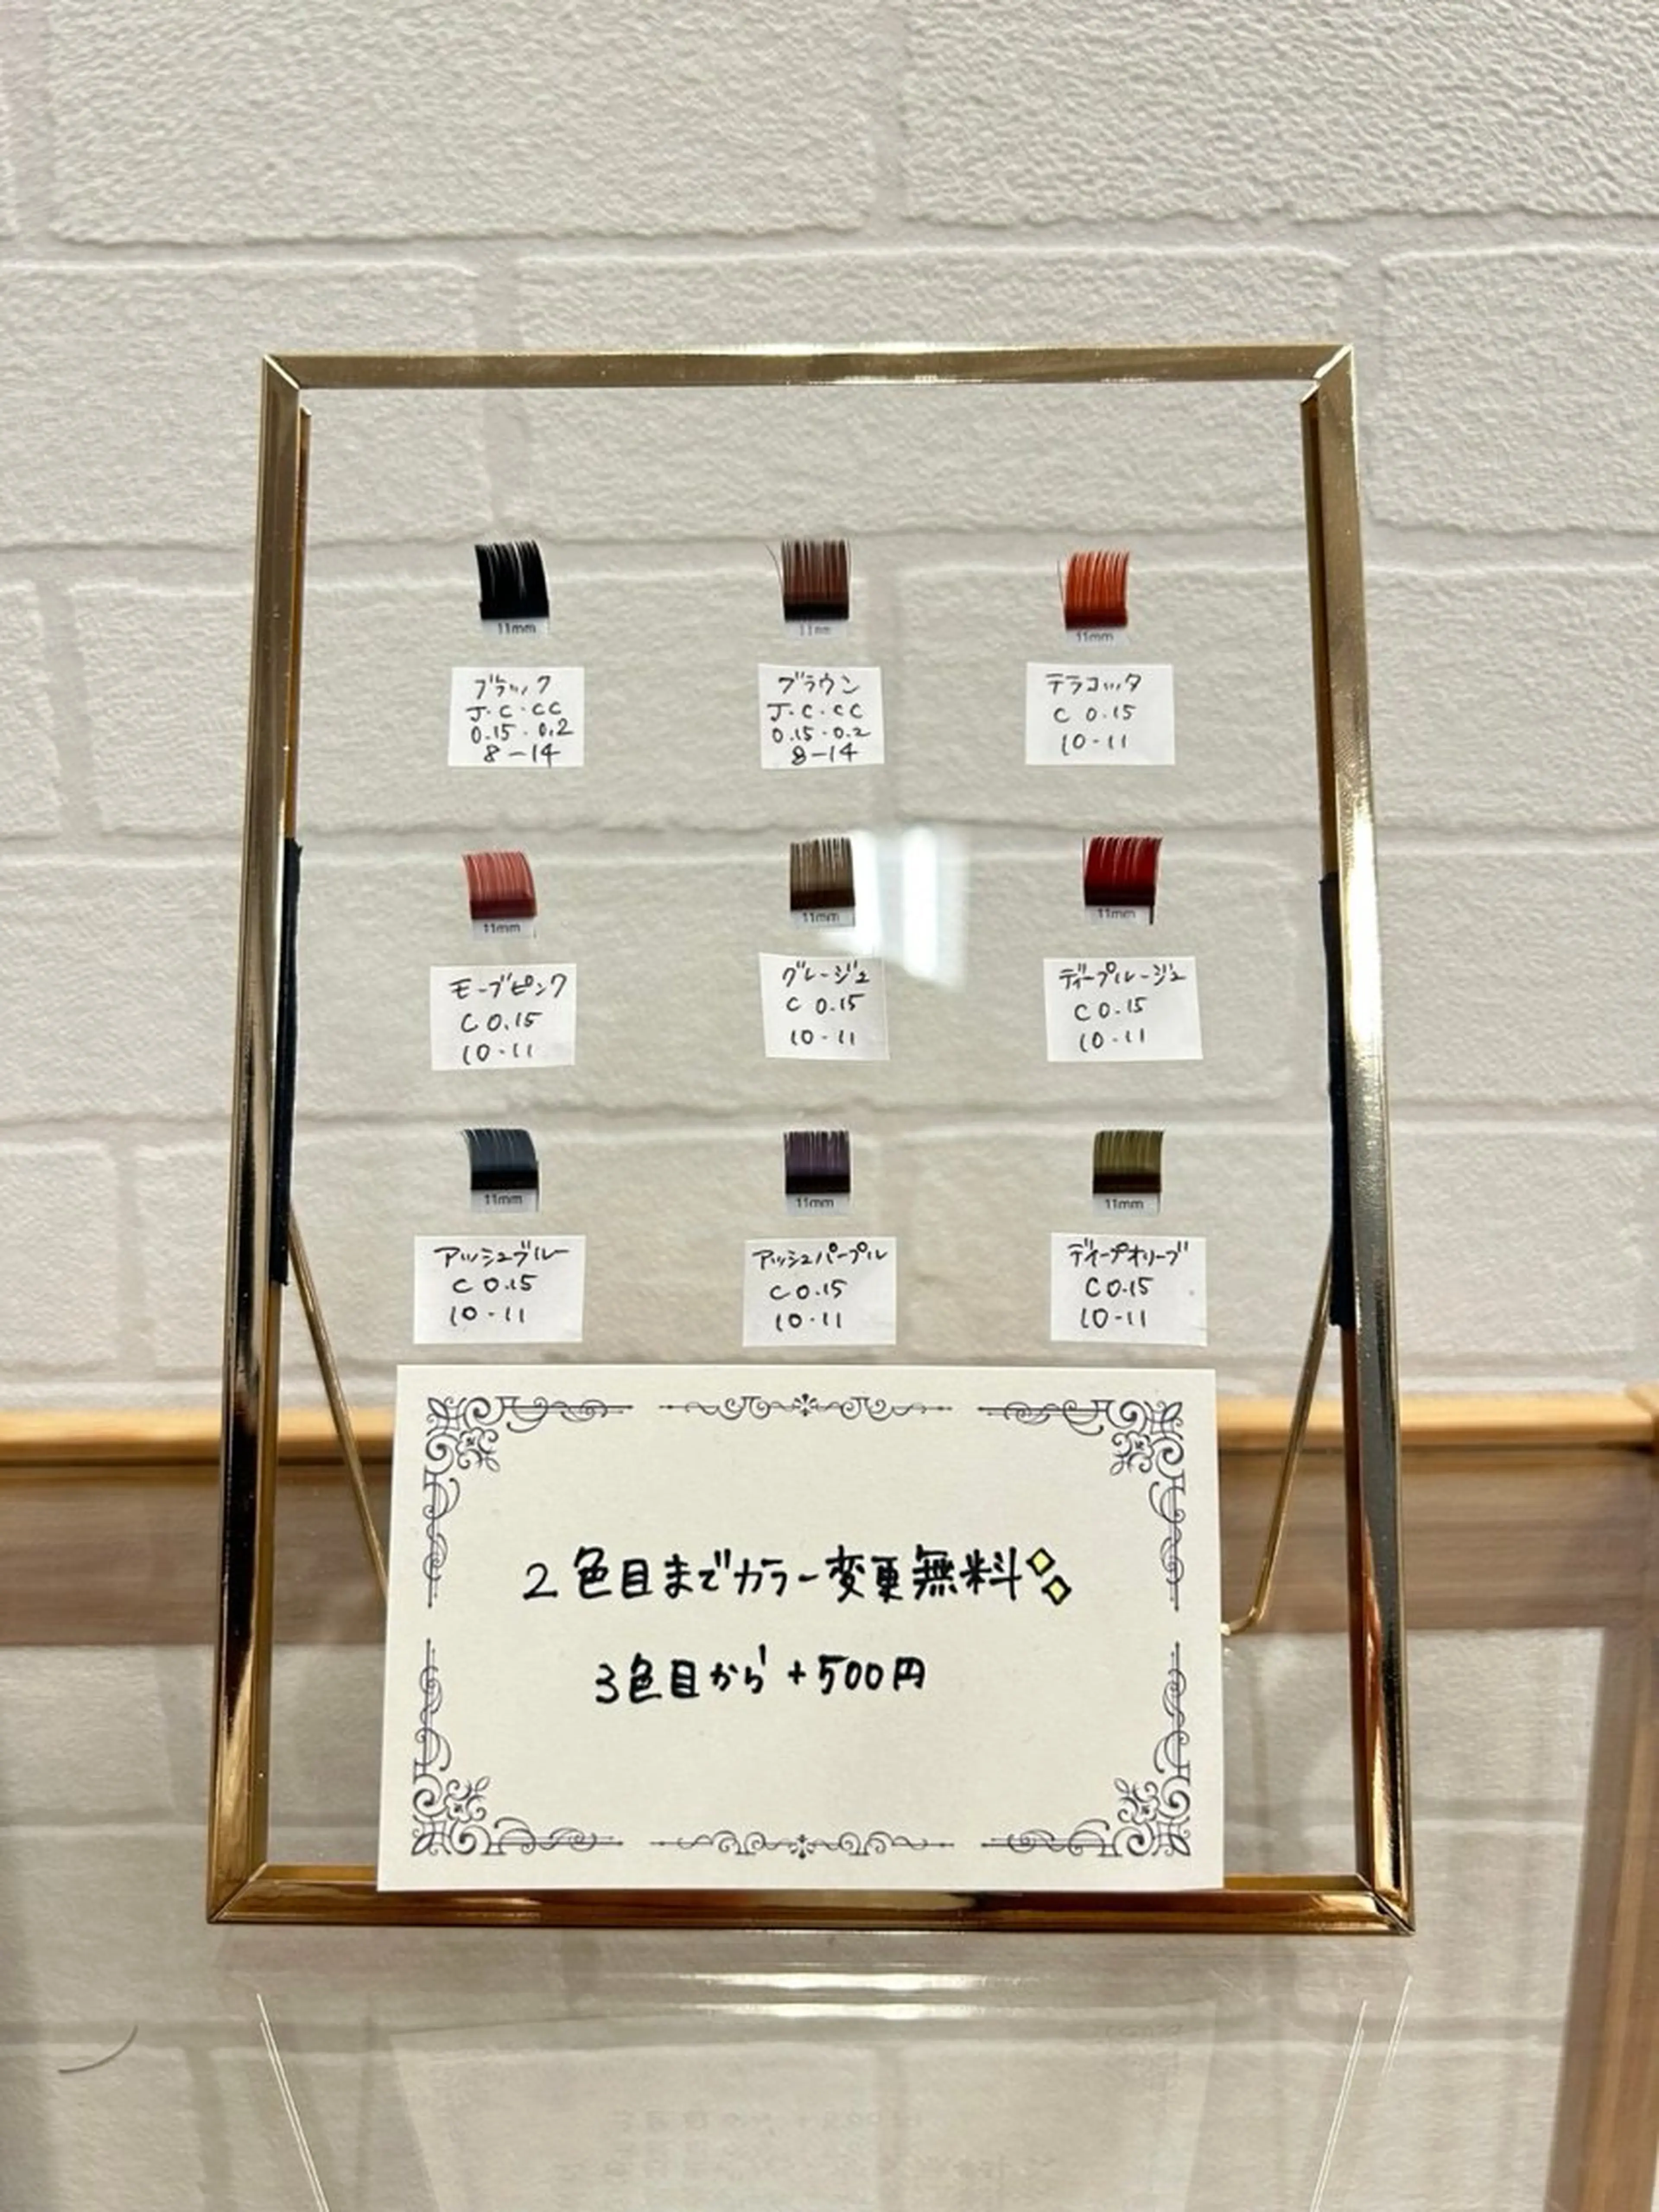 11mm
11mm
11mm
ブラック
J・C・CC
0.15・0.2
8-14
ブラウン
J・C・CC
0.15・0.2
8-14
テラコッタ
C 0.15
10-11
11mm
11mm
11mm
モーブピンク
C 0.15
10-11
グレージュ
C 0.15
10-11
ディープルージュ
C 0.15
10-11
11mm
11mm
11mm
アッシュブルー
C 0.15
10-11
アッシュパープル
C 0.15
10-11
ディープオリーブ
C 0.15
10-11
2色目までカラー変更無料
3色目から+500円